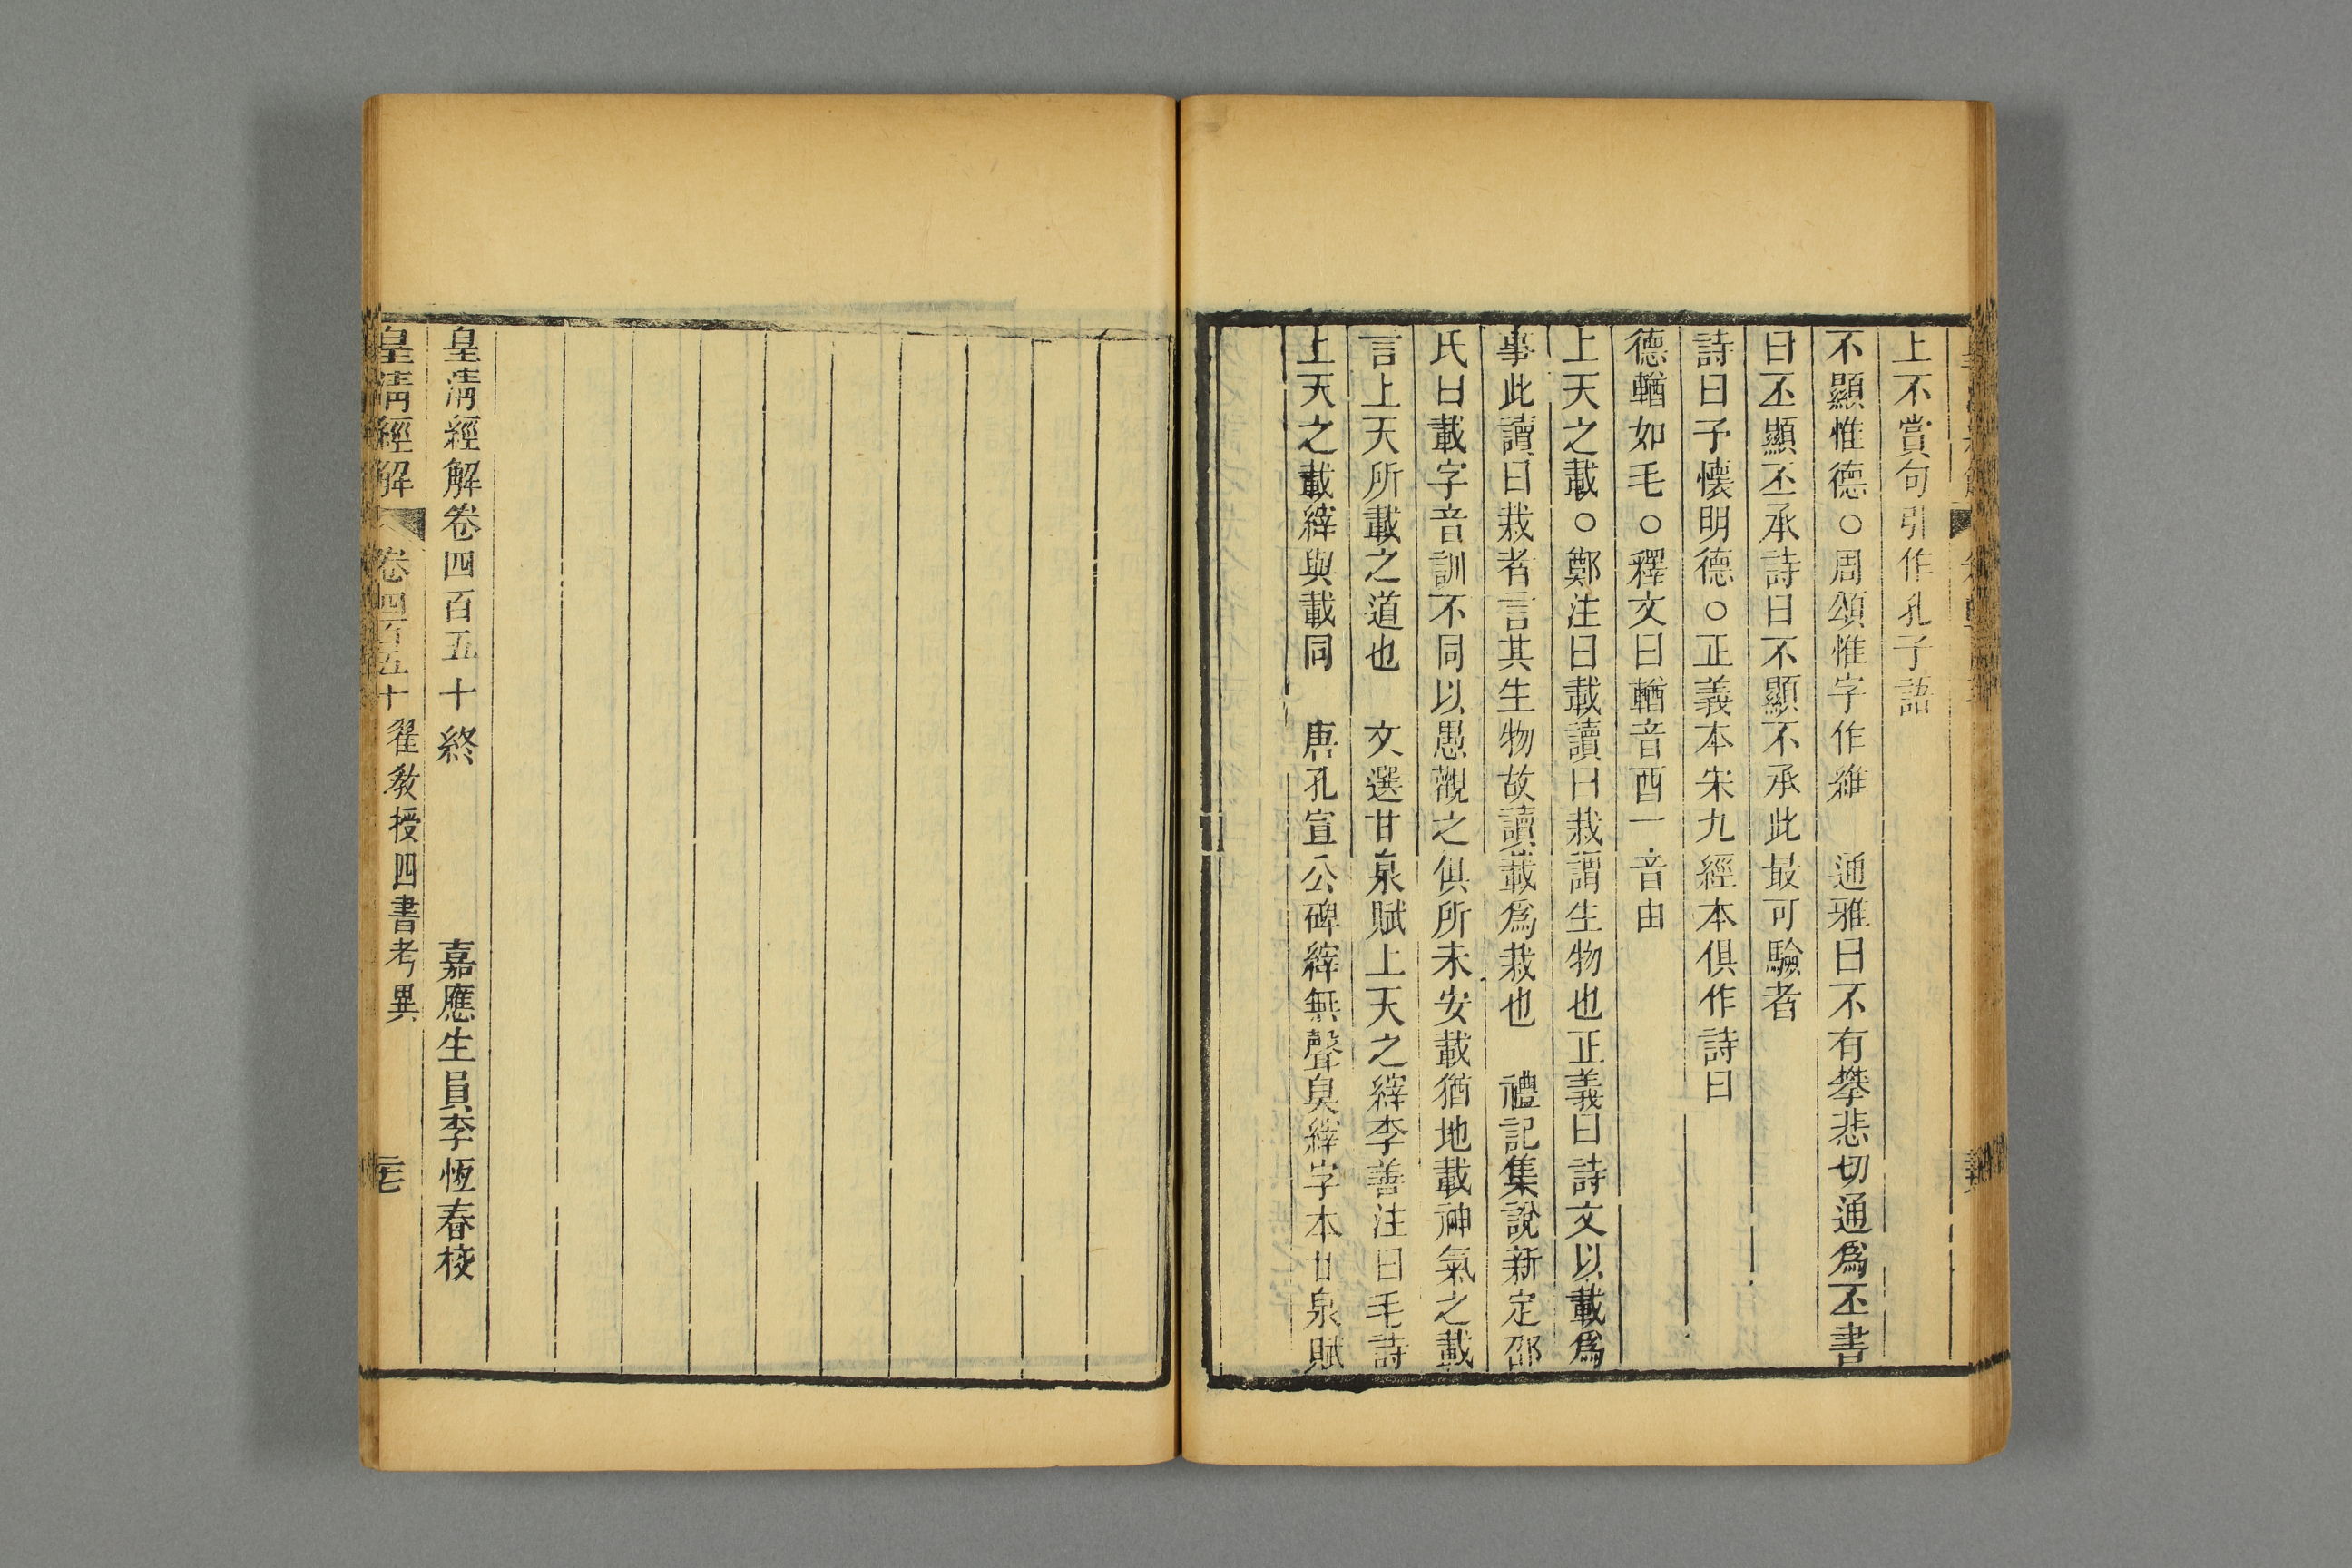 上不賞句引作孔子語
不顯惟德○周頌惟字作維　通雅曰不有攀悲切通爲丕書
曰丕顯丕承詩曰不顯不承此最可驗者
詩曰予懷明德○正義本宋九經本俱作詩曰
德輶如毛○釋文曰輶音酉一音由
上天之載○鄭注曰載讀曰栽謂生物也正義曰詩文以載爲
事此讀曰栽者言其生物故讀載爲栽也　禮記集說新定邵
氏曰載字音訓不同以愚觀之俱所未安載猶地載神氣之載
言上天所載之道也　文選甘泉賦上天之縡李善注曰毛詩
上天之載縡與載同　唐孔宣公碑縡無聲臭縡字本甘泉賦
皇清經解卷四百五十終　嘉應生員李恆春校
皇清經解　卷四百五十　翟教授四書考異